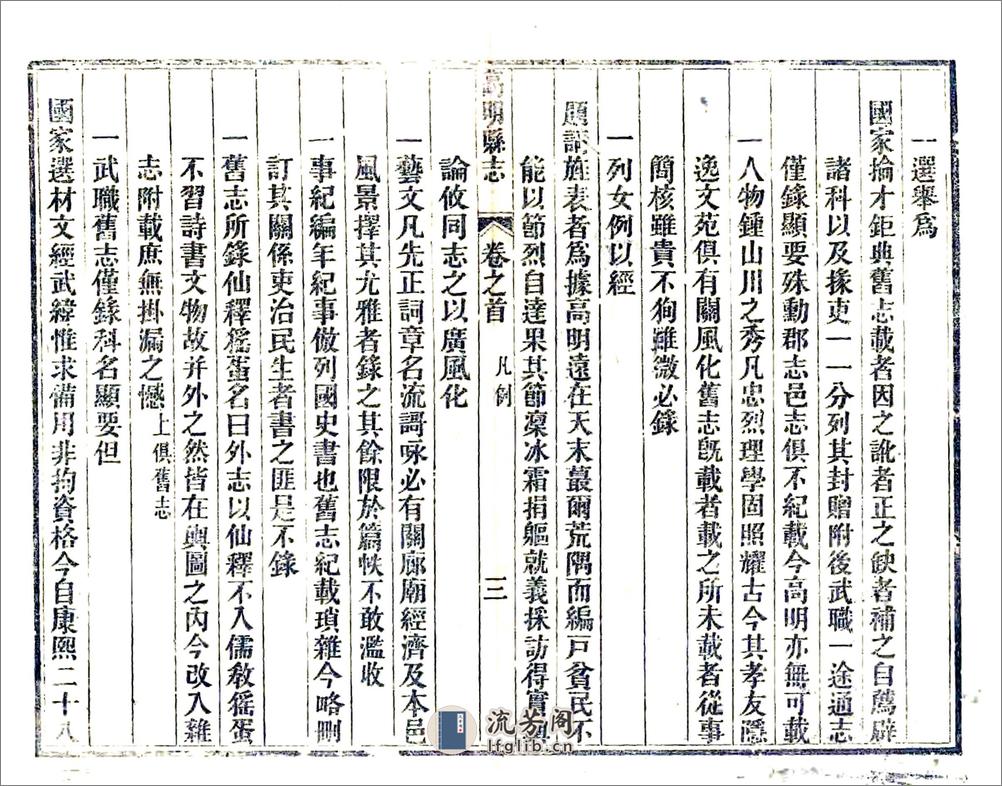 一選舉爲
國家掄才鉅典舊志載者因之訛者正之缺者補之自薦辟
諸科以及掾吏一一分列其封贈附後武職一途通志
僅錄顯要殊勳郡志邑志俱不紀載今高明亦無可載
一人物鍾山川之秀凡忠烈理學固照耀古今其孝友隱
逸文苑俱有關風化舊志旣載者載之所未載者從事
簡核雖貴不狥雖微必錄
一列女例以經
題請旌表者爲據高明遠在天末蕞爾荒隅而編戸貧民不
能以節烈自達果其節凜冰霜捐軀就義採訪得實輿
論攸同志之以廣風化
高明縣志 卷之首 凡例 三
一藝文凡先正詞章名流謌咏必有關廊廟經濟及本邑
風景擇其尤雅者錄之其餘限於篇帙不敢濫收
一事紀編年紀事倣列國史書也舊志紀載瑣雜今略刪
訂其關係吏治民生者書之匪是不錄
一舊志所錄仙釋猺蛋名曰外志以仙釋不入儒敎猺蛋
不習詩書文物故幷外之然皆在輿圖之內今改入雜
志附載庶無掛漏之憾上俱舊志
一武職舊志僅錄科名顯要但
國家選材文經武緯惟求備用非拘資格今自康熙二十八
流芳阁
lfglib.cn